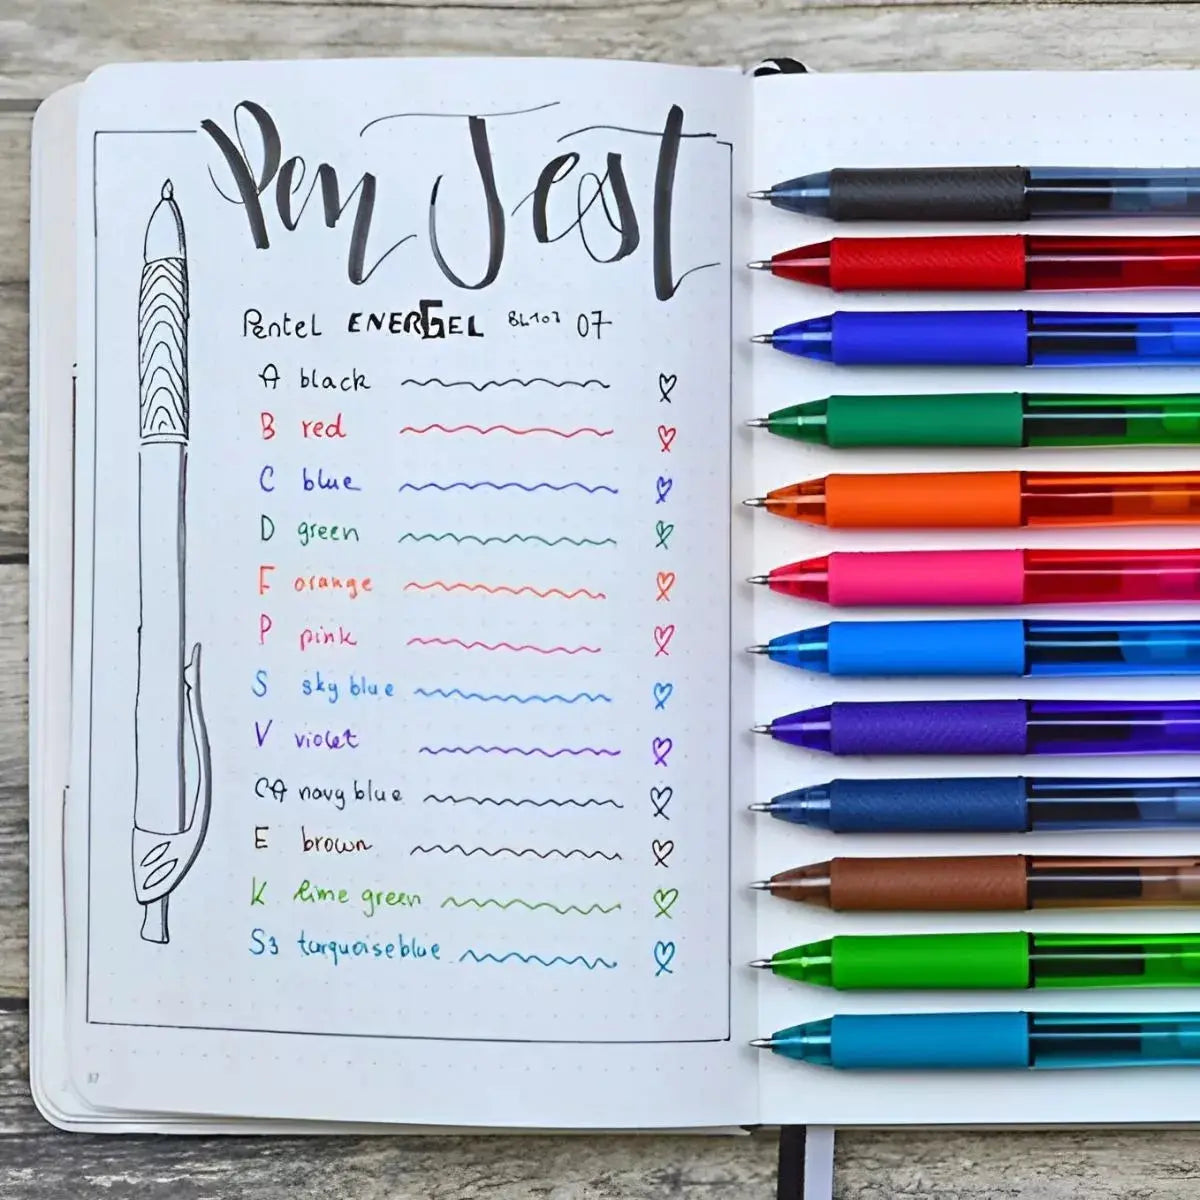 Pen Test
Pentel ENERGEL BL107 07
A black
B red
C blue
D green
F orange
P pink
S sky blue
V violet
CA navy blue
E brown
K lime green
S3 turquoise blue
37